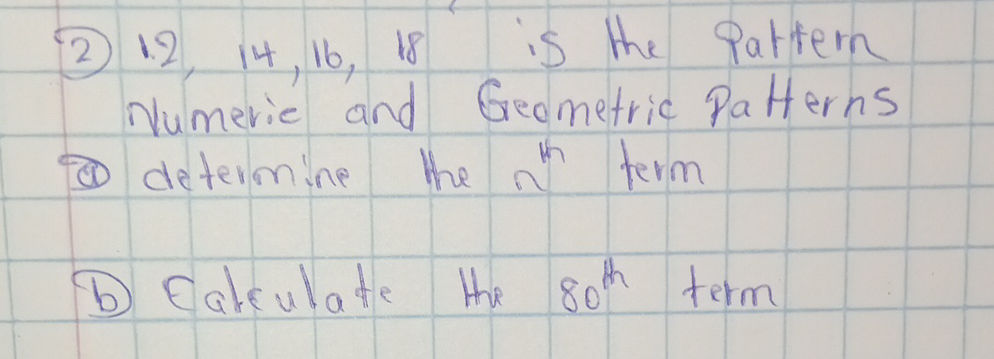 ② 12, 14, 16, 18 is the Pattern
Numeric and Geometric Patterns
ⓐ determine the nth term
ⓑ Calculate the 80th term